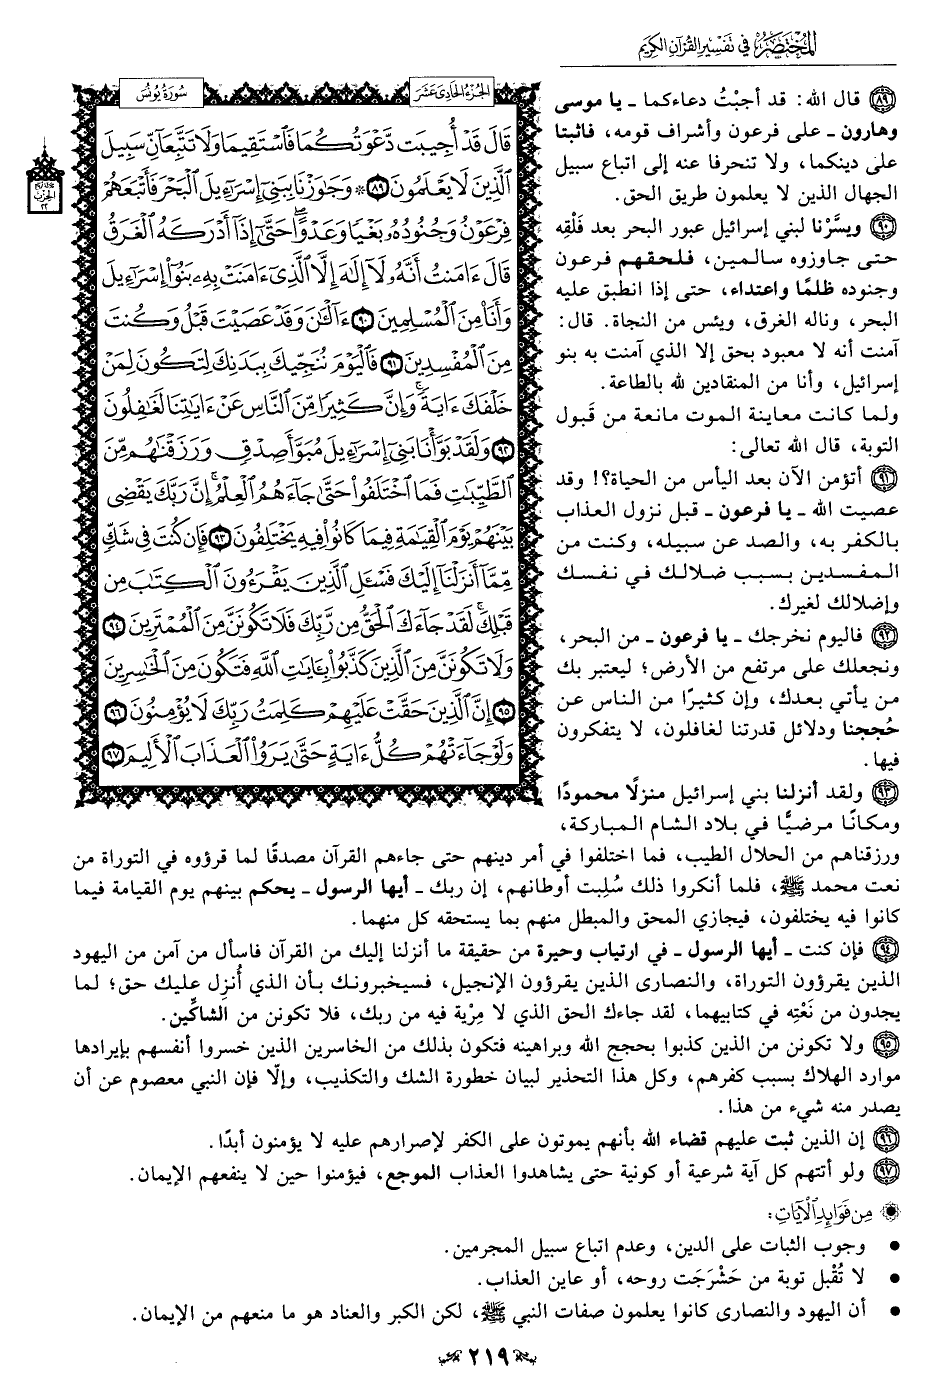 المختصر في تفسير القرآن الكريم
سورة يونس
الجزء الحادي عشر
قَالَ قَدۡ أُجِيبَت دَّعۡوَتُكُمَا فَٱسۡتَقِيمَا وَلَا تَتَّبِعَآنِّ سَبِيلَ
ٱلَّذِينَ لَا يَعۡلَمُونَ ٨٩ ۞ وَجَٰوَزۡنَا بِبَنِيٓ إِسۡرَٰٓءِيلَ ٱلۡبَحۡرَ فَأَتۡبَعَهُمۡ
فِرۡعَوۡنُ وَجُنُودُهُۥ بَغۡيٗا وَعَدۡوًاۖ حَتَّىٰٓ إِذَآ أَدۡرَكَهُ ٱلۡغَرَقُ
قَالَ ءَامَنتُ أَنَّهُۥ لَآ إِلَٰهَ إِلَّا ٱلَّذِيٓ ءَامَنَتۡ بِهِۦ بَنُوٓاْ إِسۡرَٰٓءِيلَ
وَأَنَا۠ مِنَ ٱلۡمُسۡلِمِينَ ٩٠ ءَآلۡـَٰٔنَ وَقَدۡ عَصَيۡتَ قَبۡلُ وَكُنتَ
مِنَ ٱلۡمُفۡسِدِينَ ٩١ فَٱلۡيَوۡمَ نُنَجِّيكَ بِبَدَنِكَ لِتَكُونَ لِمَنۡ
خَلۡفَكَ ءَايَةٗۚ وَإِنَّ كَثِيرٗا مِّنَ ٱلنَّاسِ عَنۡ ءَايَٰتِنَا لَغَٰفِلُونَ
٩٢ وَلَقَدۡ بَوَّأۡنَا بَنِيٓ إِسۡرَٰٓءِيلَ مُبَوَّأَ صِدۡقٖ وَرَزَقۡنَٰهُم مِّنَ
ٱلطَّيِّبَٰتِ فَمَا ٱخۡتَلَفُواْ حَتَّىٰ جَآءَهُمُ ٱلۡعِلۡمُۚ إِنَّ رَبَّكَ يَقۡضِي
بَيۡنَهُمۡ يَوۡمَ ٱلۡقِيَٰمَةِ فِيمَا كَانُواْ فِيهِ يَخۡتَلِفُونَ ٩٣ فَإِن كُنتَ فِي شَكّٖ
مِّمَّآ أَنزَلۡنَآ إِلَيۡكَ فَسۡـَٔلِ ٱلَّذِينَ يَقۡرَءُونَ ٱلۡكِتَٰبَ مِن
قَبۡلِكَۚ لَقَدۡ جَآءَكَ ٱلۡحَقُّ مِن رَّبِّكَ فَلَا تَكُونَنَّ مِنَ ٱلۡمُمۡتَرِينَ ٩٤
وَلَا تَكُونَنَّ مِنَ ٱلَّذِينَ كَذَّبُواْ بِـَٔايَٰتِ ٱللَّهِ فَتَكُونَ مِنَ ٱلۡخَٰسِرِينَ
٩٥ إِنَّ ٱلَّذِينَ حَقَّتۡ عَلَيۡهِمۡ كَلِمَتُ رَبِّكَ لَا يُؤۡمِنُونَ ٩٦
وَلَوۡ جَآءَتۡهُمۡ كُلُّ ءَايَةٍ حَتَّىٰ يَرَوُاْ ٱلۡعَذَابَ ٱلۡأَلِيمَ ٩٧
٨٩ قال الله: قد أجبْتُ دعاءكما ـ يا موسى
وهارون ـ على فرعون وأشراف قومه، فاثبتا
على دينكما، ولا تنحرفا عنه إلى اتباع سبيل
الجهال الذين لا يعلمون طريق الحق.
٩٠ ويسَّرْنا لبني إسرائيل عبور البحر بعد فَلْقِه
حتى جاوزوه سالمين، فلحقهم فرعون
وجنوده ظلمًا واعتداء، حتى إذا انطبق عليه
البحر، وناله الغرق، ويئس من النجاة. قال:
آمنت أنه لا معبود بحق إلا الذي آمنت به بنو
إسرائيل، وأنا من المنقادين لله بالطاعة.
ولما كانت معاينة الموت مانعة من قَبول
التوبة، قال الله تعالى:
٩١ أتؤمن الآن بعد اليأس من الحياة؟! وقد
عصيت الله ـ يا فرعون ـ قبل نزول العذاب
بالكفر به، والصد عن سبيله، وكنت من
المفسدين بسبب ضلالك في نفسك
وإضلالك لغيرك.
٩٢ فاليوم نخرجك ـ يا فرعون ـ من البحر،
ونجعلك على مرتفع من الأرض؛ ليعتبر بك
من يأتي بعدك، وإن كثيرًا من الناس عن
حُججنا ودلائل قدرتنا لغافلون، لا يتفكرون
فيها.
٩٣ ولقد أنزلنا بني إسرائيل منزلًا محمودًا
ومكانًا مرضيًّا في بلاد الشام المباركة،
ورزقناهم من الحلال الطيب، فما اختلفوا في أمر دينهم حتى جاءهم القرآن مصدقًا لما قرؤوه في التوراة من
نعت محمد ﷺ، فلما أنكروا ذلك سُلِبت أوطانهم، إن ربك ـ أيها الرسول ـ يحكم بينهم يوم القيامة فيما
كانوا فيه يختلفون، فيجازي المحق والمبطل منهم بما يستحقه كل منهما.
٩٤ فإن كنت ـ أيها الرسول ـ في ارتياب وحيرة من حقيقة ما أنزلنا إليك من القرآن فاسأل من آمن من اليهود
الذين يقرؤون التوراة، والنصارى الذين يقرؤون الإنجيل، فسيخبرونك بأن الذي أُنزِل عليك حق؛ لما
يجدون من نَعْتِه في كتابيهما، لقد جاءك الحق الذي لا مِرْية فيه من ربك، فلا تكونن من الشاكِّين.
٩٥ ولا تكونن من الذين كذبوا بحجج الله وبراهينه فتكون بذلك من الخاسرين الذين خسروا أنفسهم بإيرادها
موارد الهلاك بسبب كفرهم، وكل هذا التحذير لبيان خطورة الشك والتكذيب، وإلّا فإن النبي معصوم عن أن
يصدر منه شيء من هذا.
٩٦ إن الذين ثبت عليهم قضاء الله بأنهم يموتون على الكفر لإصرارهم عليه لا يؤمنون أبدًا.
٩٧ ولو أتتهم كل آية شرعية أو كونية حتى يشاهدوا العذاب الموجع، فيؤمنوا حين لا ينفعهم الإيمان.
من فوائد الآيات:
• وجوب الثبات على الدين، وعدم اتباع سبيل المجرمين.
• لا تُقْبل توبة من حَشْرَجَت روحه، أو عاين العذاب.
• أن اليهود والنصارى كانوا يعلمون صفات النبي ﷺ، لكن الكبر والعناد هو ما منعهم من الإيمان.
٢١٩